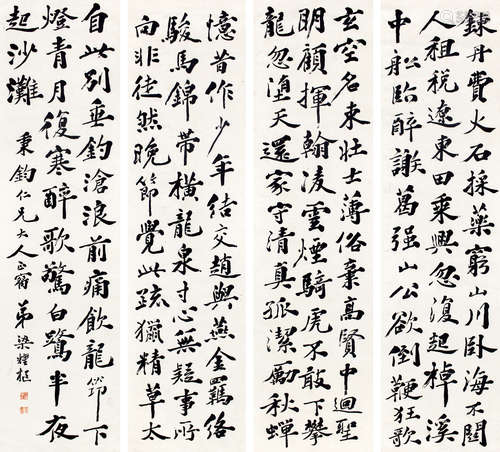 憶昔作少年結交趙與燕金羈絡
駿馬錦帶橫龍泉寸心無疑事所
向非徒然晚節覺此疏獵精草太
玄空名束壯士薄俗棄高賢中迴聖
明顧揮翰凌雲煙騎虎不敢下攀
龍忽堕天還家守清真孤潔勵秋蟬
鍊丹費火石採藥窮山川卧海不關
人租稅遼東田乘興忽復起棹溪
中船臨醉謝葛强山公欲倒鞭狂歌
自此别垂釣滄浪前痛飲龍筇下
燈青月復寒醉歌驚白鷺半夜
起沙灘 秉鈞仁兄大人正 弟梁燿樞